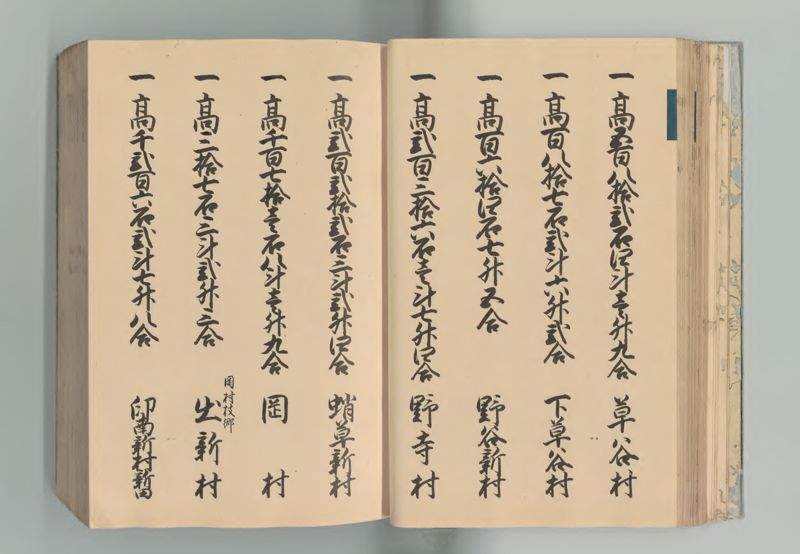 一 高五百八拾弐石四斗壱升九合 草谷村
一 高百八拾七石弐斗六升弐合 下草谷村
一 高百六拾四石七升五合 野谷新村
一 高弐百三拾六石壱斗七升四合 野寺村
一 高弐百弐拾弐石三斗弐升四合 蛸草新村
一 高千百七拾壱石八斗壱升九合 岡村
岡村枝郷
一 高三拾七石三斗弐升三合 出新村
一 高千弐百六石弐斗七升八合 印南新村新田